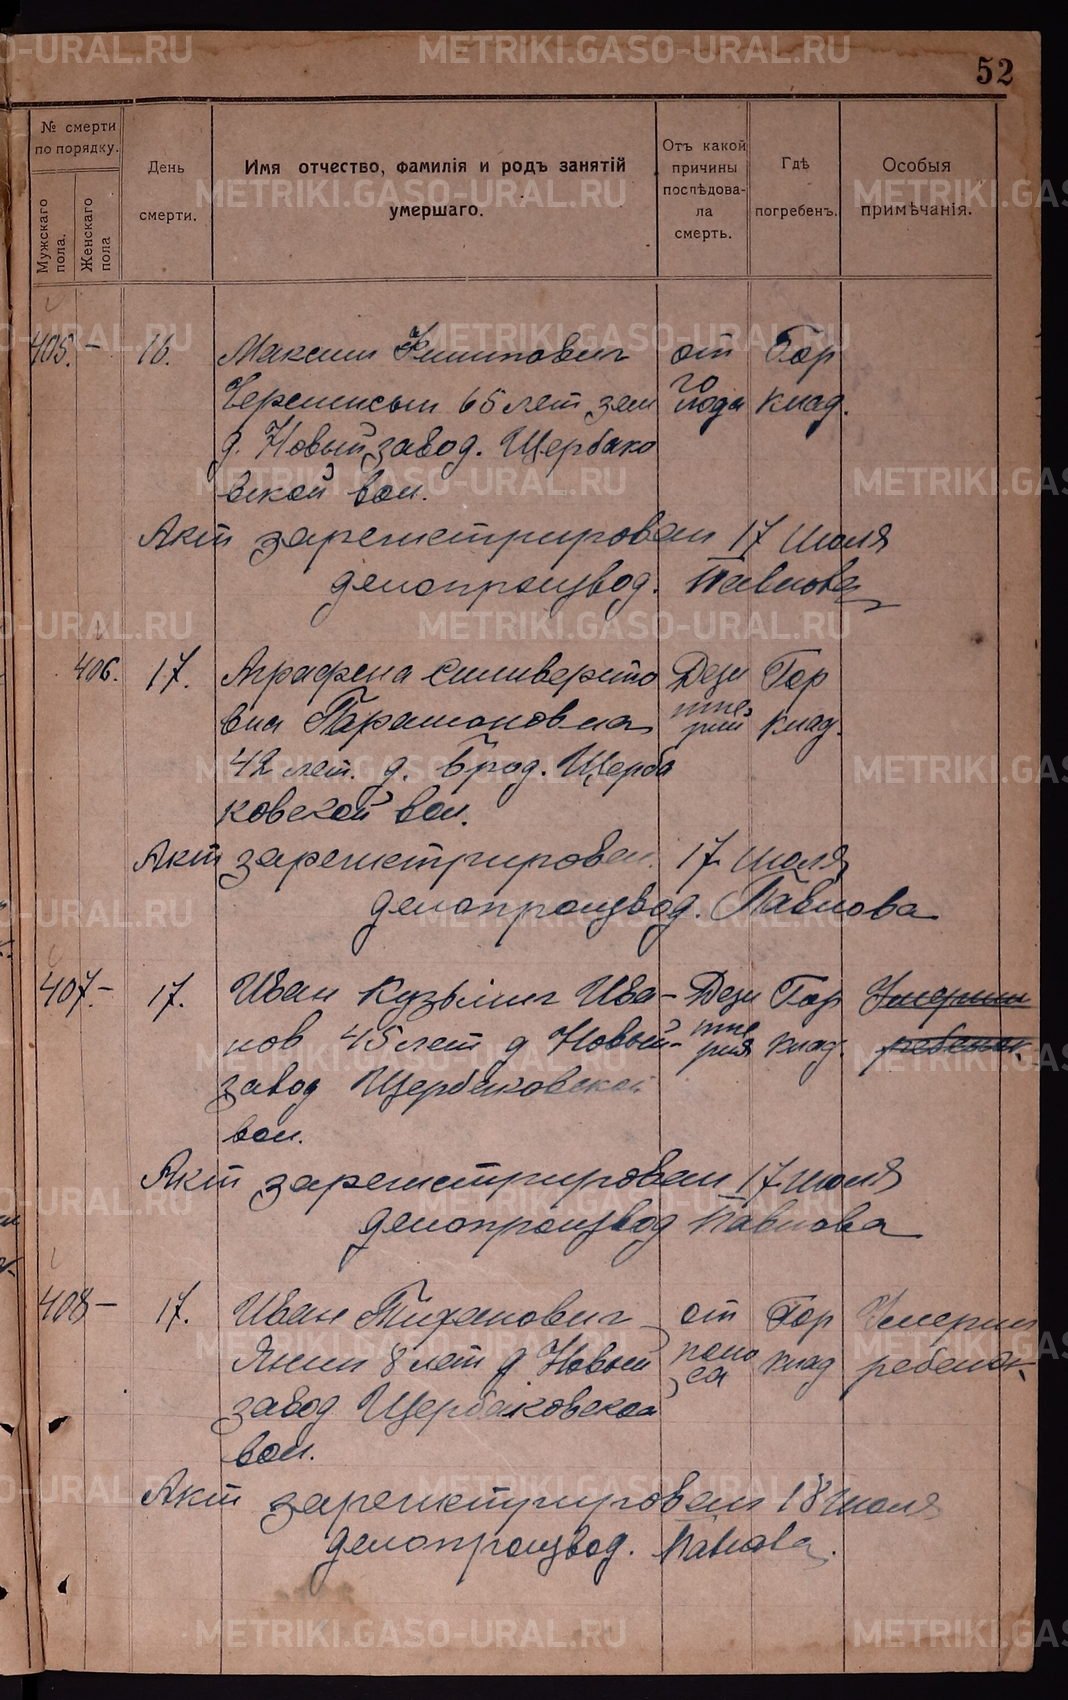 52
№ смерти
по порядку.
Мужскаго
пола.
Женскаго
пола
День
смерти.
Имя отчество, фамилія и родъ занятій
умершаго.
Отъ какой
причины
послѣдова-
ла
смерть.
Гдѣ
погребенъ.
Особыя
примѣчанія.
405. – 16. Максим Филипович от Гор
65 лет зем голода клад.
д. Новый завод. Щербако
вской вол.
Акт зарегистрирован 17 июля
делопроизвод. Павлова
406. 17. Аграфена Силиверсто Дези Гор
вна Парамоновна терии клад.
42 лет. д. Брод. Щерба
ковской вол.
Акт зарегистрирован. 17 июля
делопроизвод. Павлова
407. – 17. Иван Кузьмич Ива- Дези Гор Умерши
нов 45 лет д Новый- терия клад. ребенок
завод Щербаковской
вол.
Акт зарегистрирован 17 июля
делопроизвод Павлова
408 – 17. Иван Тиханович от Гор Умерши
Янин 8 лет д Новый поноса клад ребенок
завод Щербаковской
вол.
Акт зарегистрирован 18 июля
делопроизвод. Павлова.
METRIKI.GASO-URAL.RU